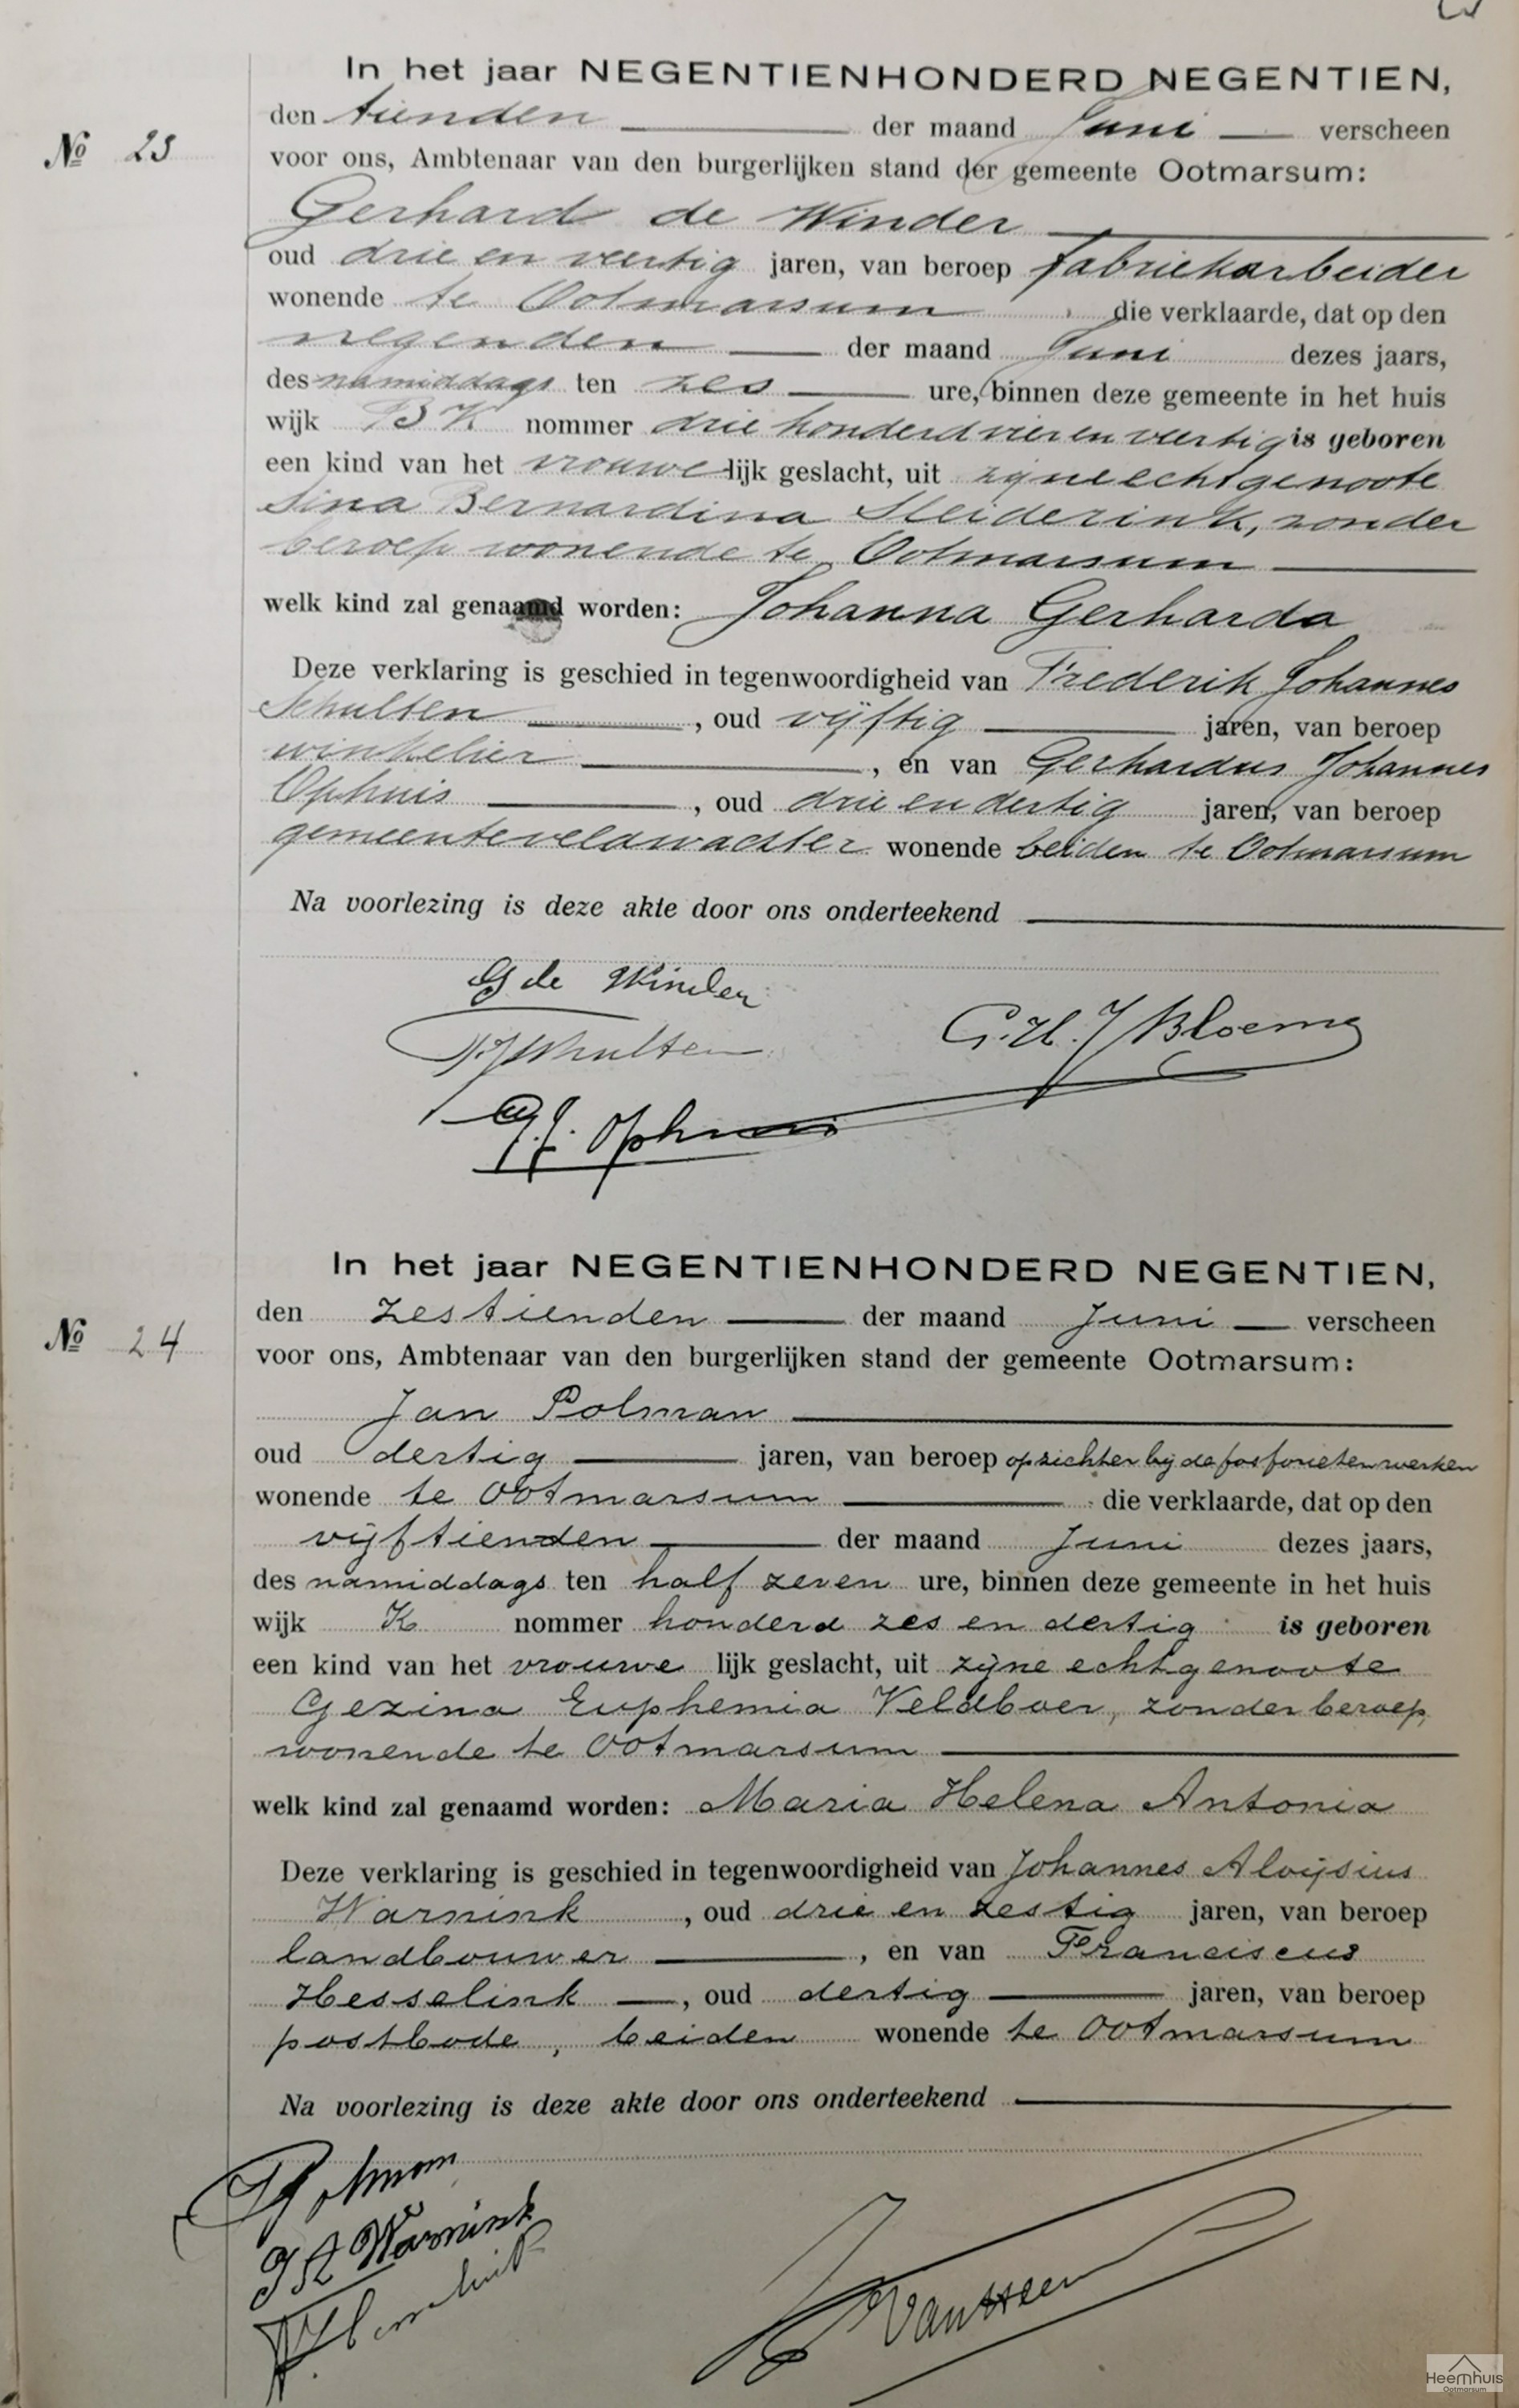 In het jaar NEGENTIENHONDERD NEGENTIEN,
den tienden der maand Juni verscheen
№ 23
voor ons, Ambtenaar van den burgerlijken stand der gemeente Ootmarsum:
Gerhard de Winder
oud drie en veertig jaren, van beroep fabriekarbeider
wonende te Ootmarsum die verklaarde, dat op den
negenden der maand Juni dezes jaars,
des namiddags ten zes ure, binnen deze gemeente in het huis
wijk B K nommer drie honderd vier en veertig is geboren
een kind van het vrouwelijk geslacht, uit zijne echtgenoote
Sina Bernardina Sleiderink, zonder
beroep wonende te Ootmarsum
welk kind zal genaamd worden: Johanna Gerharda
Deze verklaring is geschied in tegenwoordigheid van Frederik Johannes
Schulten, oud vijftig jaren, van beroep
winkelier, en van Gerhardus Johannes
Ophuis, oud drie en dertig jaren, van beroep
gemeenteveldwachter wonende beiden te Ootmarsum
Na voorlezing is deze akte door ons onderteekend
G de Winder
G. H. J Bloemg
FJ Schulten
G. J. Ophuis
In het jaar NEGENTIENHONDERD NEGENTIEN,
den zestienden der maand Juni verscheen
№ 24
voor ons, Ambtenaar van den burgerlijken stand der gemeente Ootmarsum:
Jan Polman
oud dertig jaren, van beroep opzichter bij de fosforietenwerken
wonende te Ootmarsum die verklaarde, dat op den
vijftienden der maand Juni dezes jaars,
des namiddags ten half zeven ure, binnen deze gemeente in het huis
wijk K nommer honderd zes en dertig is geboren
een kind van het vrouwe lijk geslacht, uit zijne echtgenoote
Gezina Euphemia Veldboer, zonder beroep,
wonende te Ootmarsum
welk kind zal genaamd worden: Maria Helena Antonia
Deze verklaring is geschied in tegenwoordigheid van Johannes Aloijsius
Warnink, oud drie en zestig jaren, van beroep
landbouwer, en van Franciscus
Hesselink, oud dertig jaren, van beroep
postbode, beiden wonende te Ootmarsum
Na voorlezing is deze akte door ons onderteekend
J Polman
J A Warnink
Heemhuis
Ootmarsum